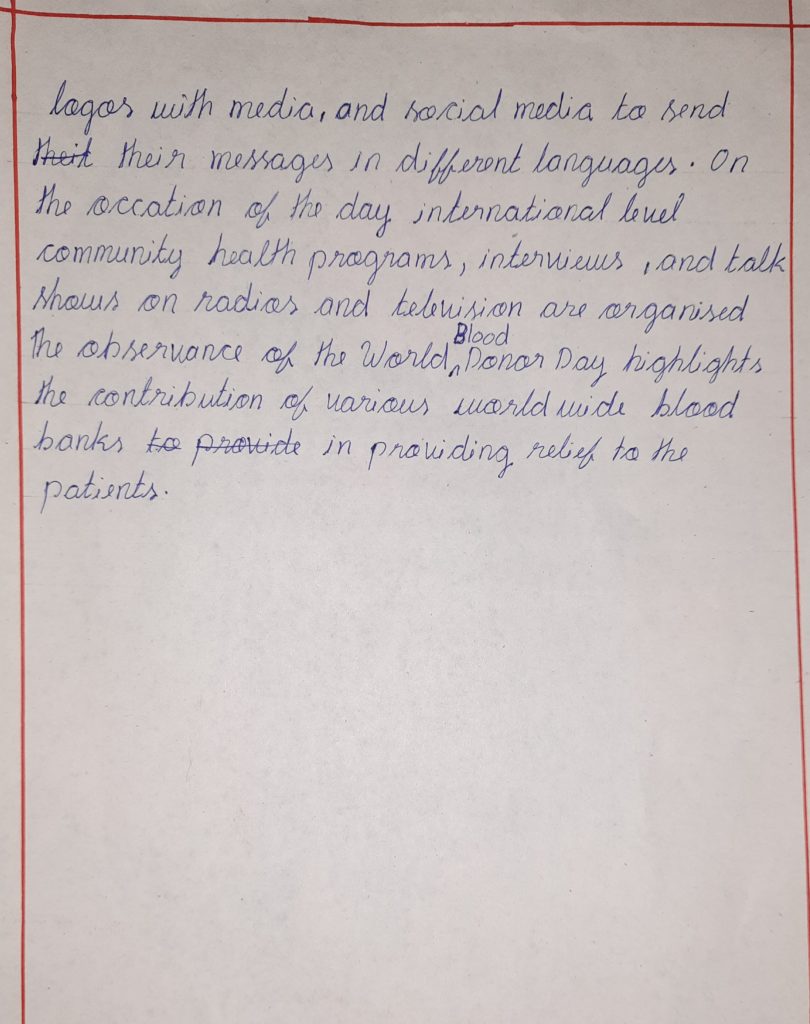 logos with media, and social media to send
their their messages in different languages. On
the occation of the day international level
community health programs, interviews , and talk
shows on radios and television are organised
the observance of the World Blood Donor Day highlights
the contribution of various world wide blood
banks to provide in providing relief to the
patients.